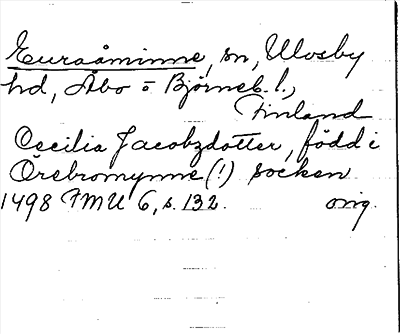 Euraåminne, sn, Ulvsby
hd, Åbo o Björneb. l.,
Finland
Cecilia Jacobzdotter, född i
Örebromynne (!) socken
1498 FMU 6, s. 132. orig.